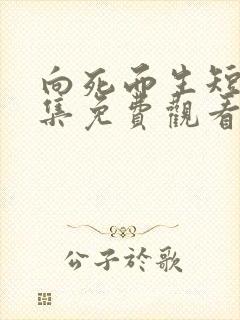 向死而生短
集免費觀看
公子於歌